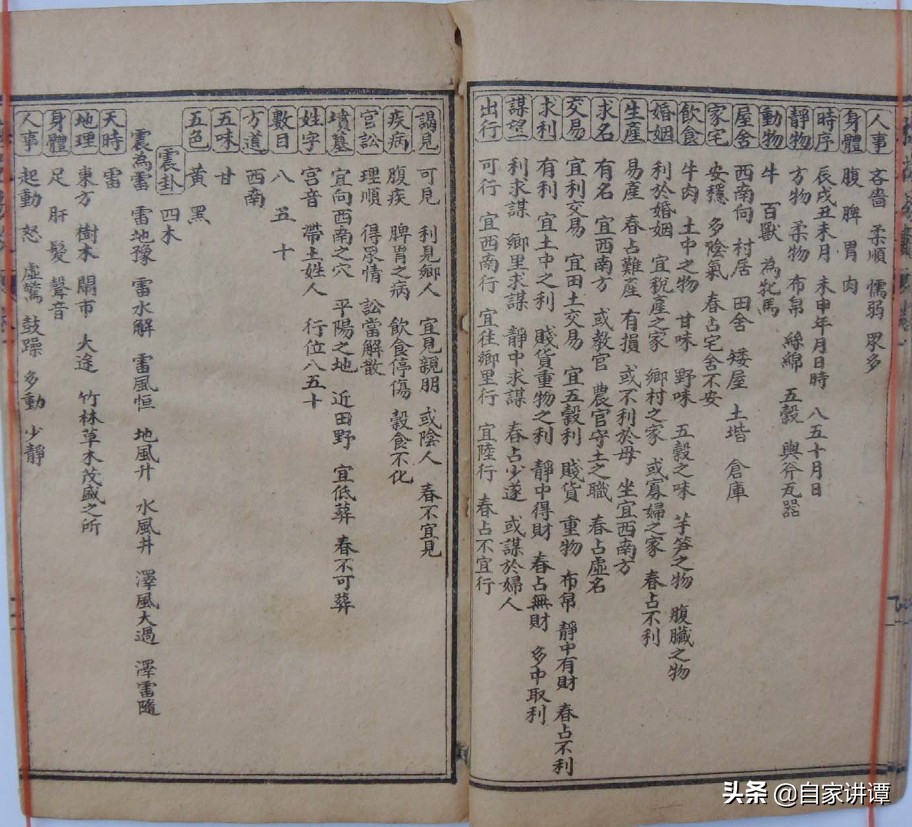 人事 吝嗇 柔順 懦弱 眾多
身體 腹 脾 胃 肉
時序 辰戌丑未月 未申年月日時 八五十月日
靜物 方物 柔物 布帛 絲綿 五穀 輿斧瓦器
動物 牛 百獸 為牝馬
屋舍 西南向 村居 田舍 矮屋 土堦 倉庫
家宅 安穩 多陰氣 春占宅舍不安
飲食 牛肉 土中之物 甘味 野味 五穀之味 芋笋之物 腹臟之物
婚姻 利於婚姻 宜稅產之家 鄉村之家 或寡婦之家 春占不利
生產 易產 春占難產 有損 或不利於母 坐宜西南方
求名 有名 宜西南方 或教官 農官守土之職 春占虛名
交易 宜利交易 宜田土交易 宜五穀利 賤貨 重物 布帛 靜中有財 春占不利
求利 有利 宜土中之利 賤貨重物之利 靜中得財 春占無財 多中取利
謀望 利求謀 鄉里求謀 靜中求謀 春占少遂 或謀於婦人
出行 可行 宜西南行 宜往鄉里行 宜陸行 春占不宜行
謁見 可見 利見鄉人 宜見親朋 或陰人 春不宜見
疾病 腹疾 脾胃之病 飲食停傷 穀食不化
官訟 理順 得眾情 訟當解散
墳墓 宜向西南之穴 平陽之地 近田野 宜低葬 春不可葬
姓字 宮音 帶土姓人 行位八五十
數目 八 五 十
方道 西南
五味 甘
五色 黃 黑
震卦 四木
震為雷 雷地豫 雷水解 雷風恒 地風升 水風井 澤風大過 澤雷隨
天時 雷
地理 東方 樹木 鬧市 大途 竹林草木茂盛之所
身體 足 肝 髮 聲音
人事 起動 怒 虛驚 鼓躁 多動 少靜
头条 @自家讲谭